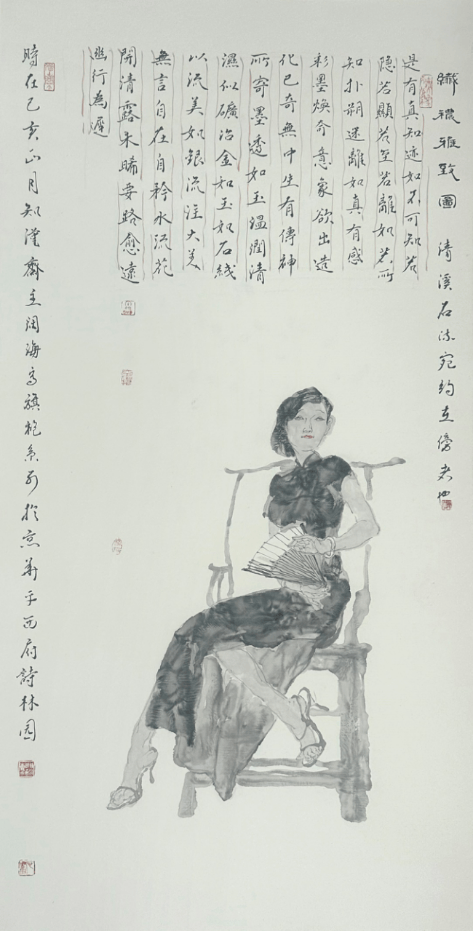 纖穠雅致圖 清溪石流宛約在傍
是有真知迹如不可知若
隱若顯若至若離如若所
知扑朔迷離如真有感
彩墨煥亦意象欲出造
化已奇無中生有傳神
所寄墨透如玉溫潤清
濕似礦冶金如玉如石綫
以流美如銀流注大美
無言自在自矜水流花
開清露未晞要路愈遠
幽行為遲
時在己亥正月知漢齋主闊海寫旗袍系列於京華平西府詩林園